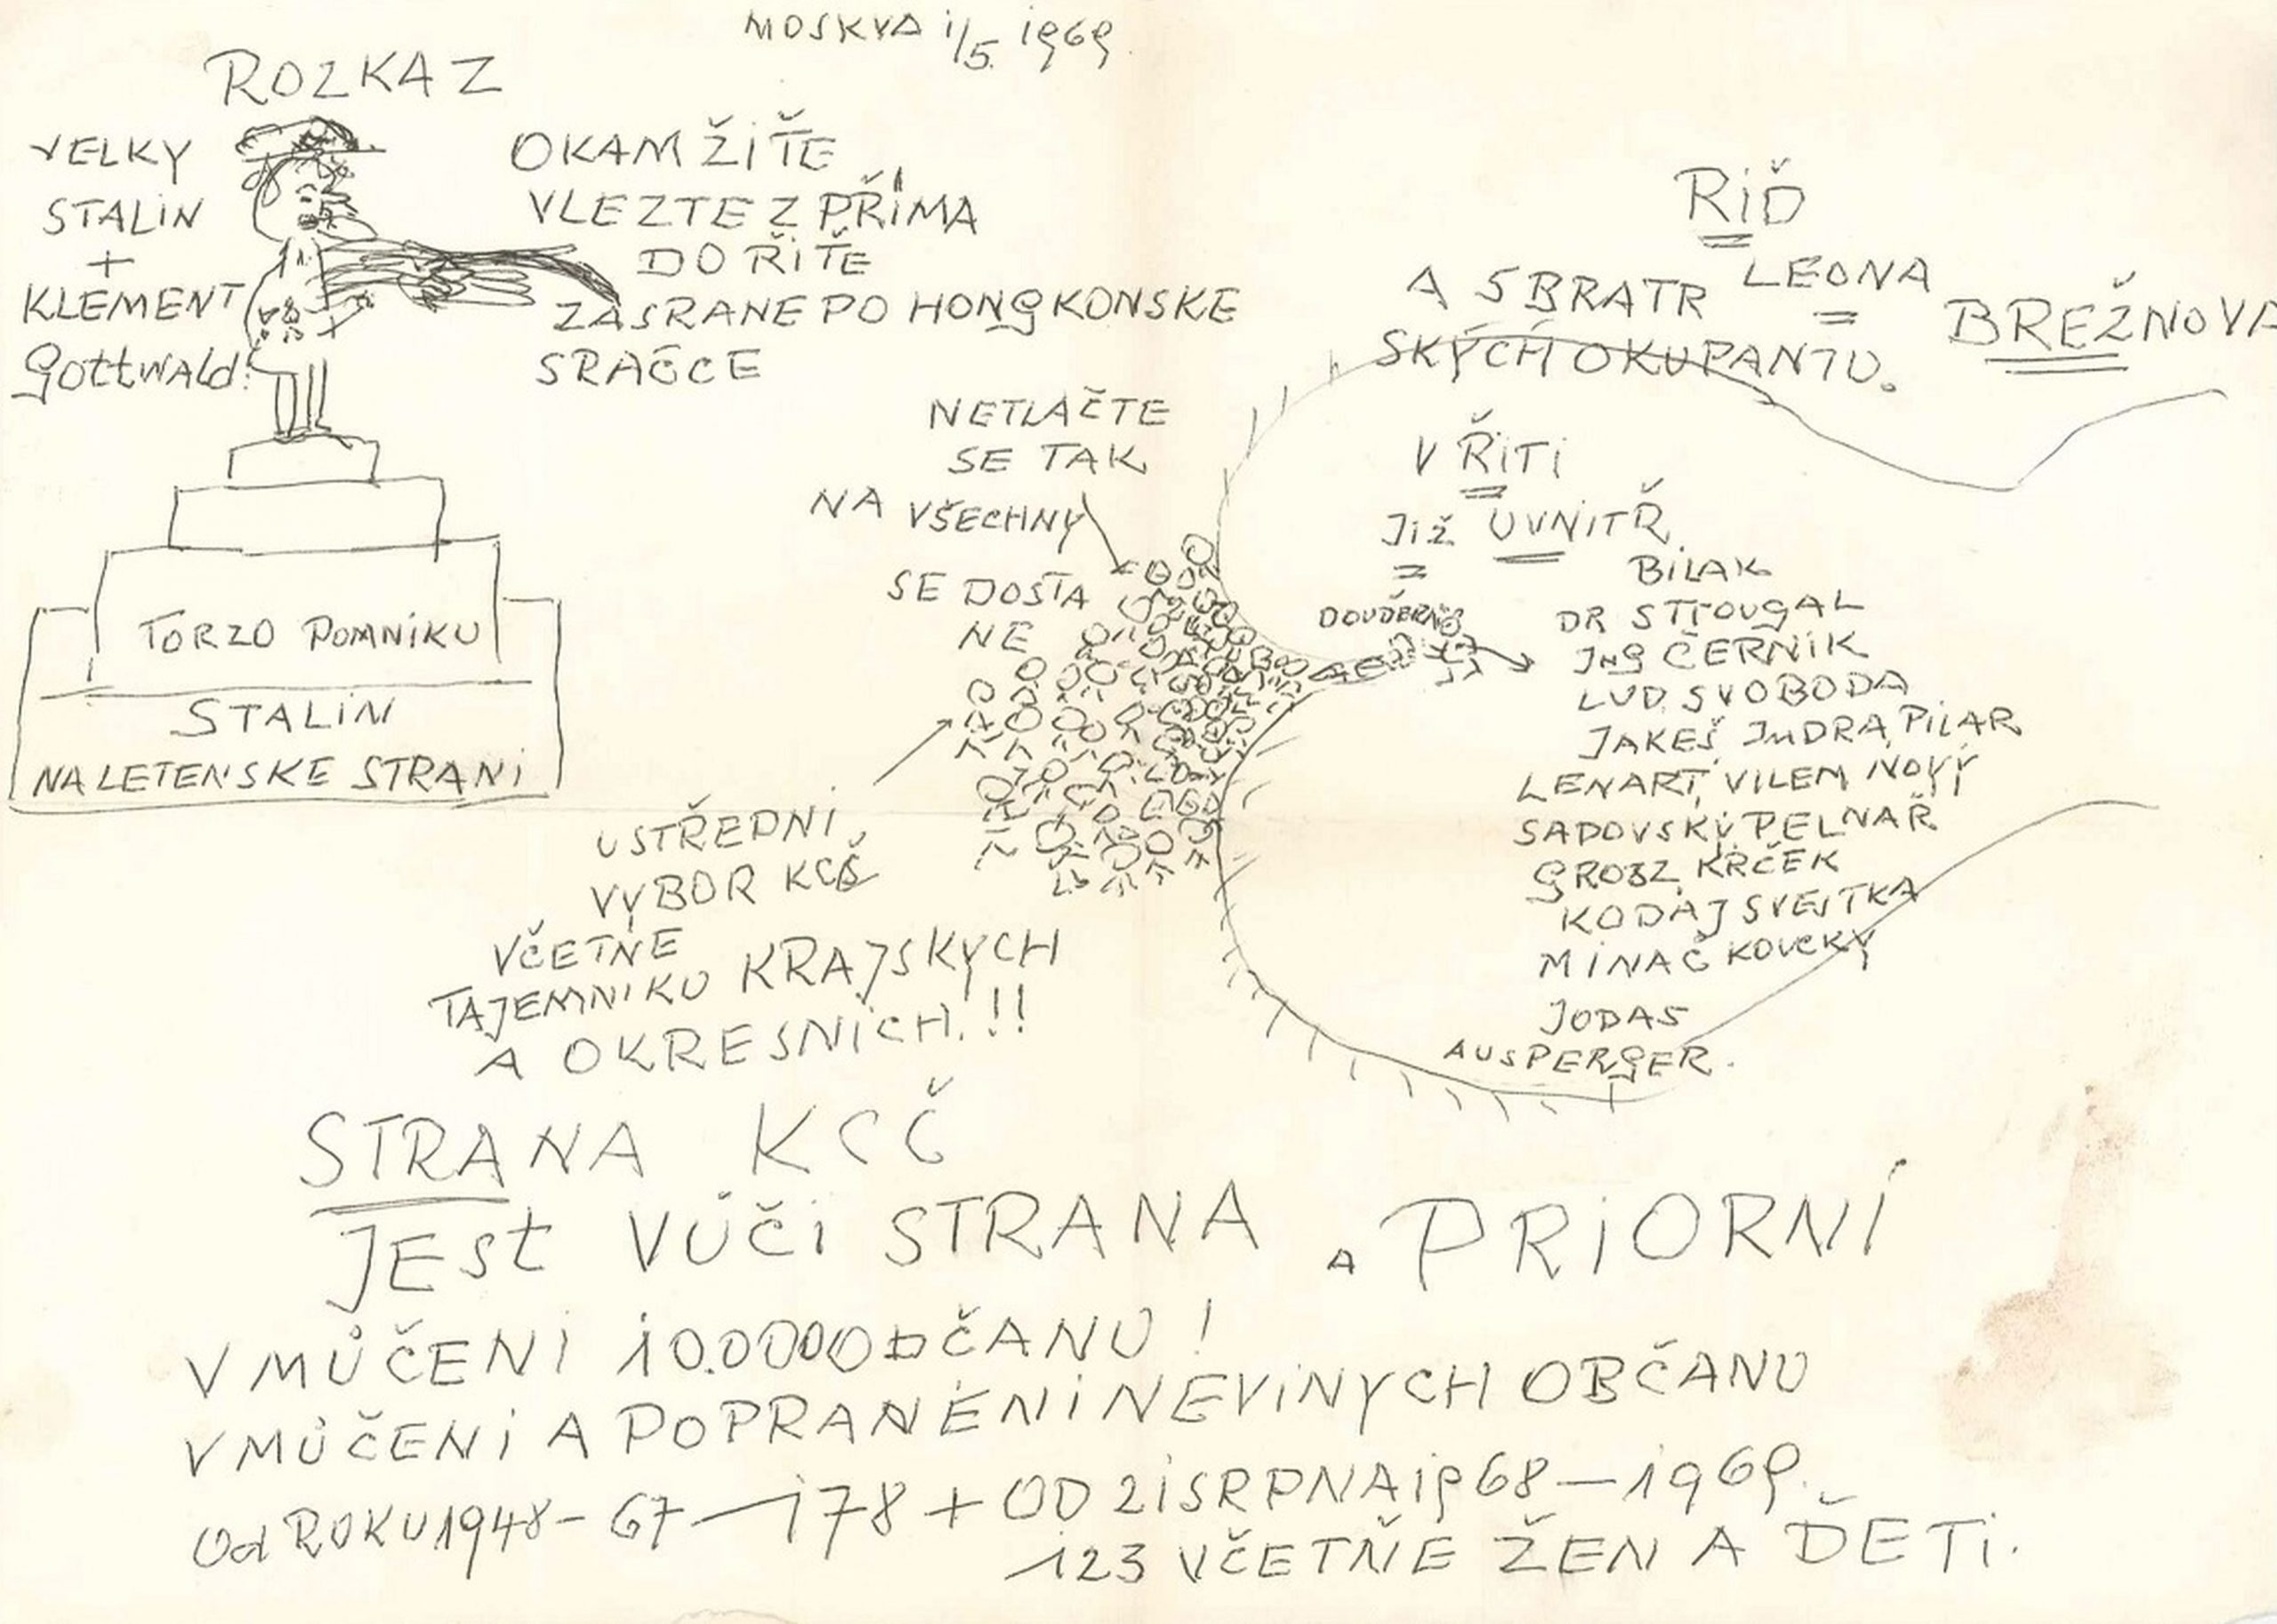 MOSKVA 1/5. 1969.
ROZKAZ
VELKY
STALIN
+
KLEMENT
Gottwald
OKAMŽIŤE
VLEZTE Z PŘÍMA
DO ŘIŤE
ZASRANE PO HONGKONSKE
SRAČCE
TORZO POMNIKU
STALIN
NA LETENSKE STRANI
RIĎ
LEONA
BREŽNOVA
A 5 BRATR
SKÝCH OKUPANTU.
NETLAČTE
SE TAK
NA VŠECHNY
SE DOSTA
NE
V ŘITI
JIŽ UVNITŘ.
BILAK
DR STROUGAL
ING ČERNIK
LUD. SVOBODA
JAKEŠ, INDRA, PILAR
LENART, VILEM NOVÝ
SADOVSKÝ, PELNAŘ
GROSZ, KRČEK
KODAJ SVESTKA
MINAČ KOUCKÝ
JODAS
AUSPERGER.
USTŘEDNI
VYBOR KCŠ
VČETNE
TAJEMNIKU KRAJSKYCH
A OKRESNICH.!!
STRANA KSČ
JESt VŮČI STRANA A PRIORNÍ
V MŮČENI 10.0000 OČANU!
V MŮČENI A POPRANÉNI NEVINYCH OBČANU
Od ROKU 1948 - 67 — 178 + OD 21 SRPNA 1968 — 1969.
123 VČETŇE ŽEN A ĎETI.